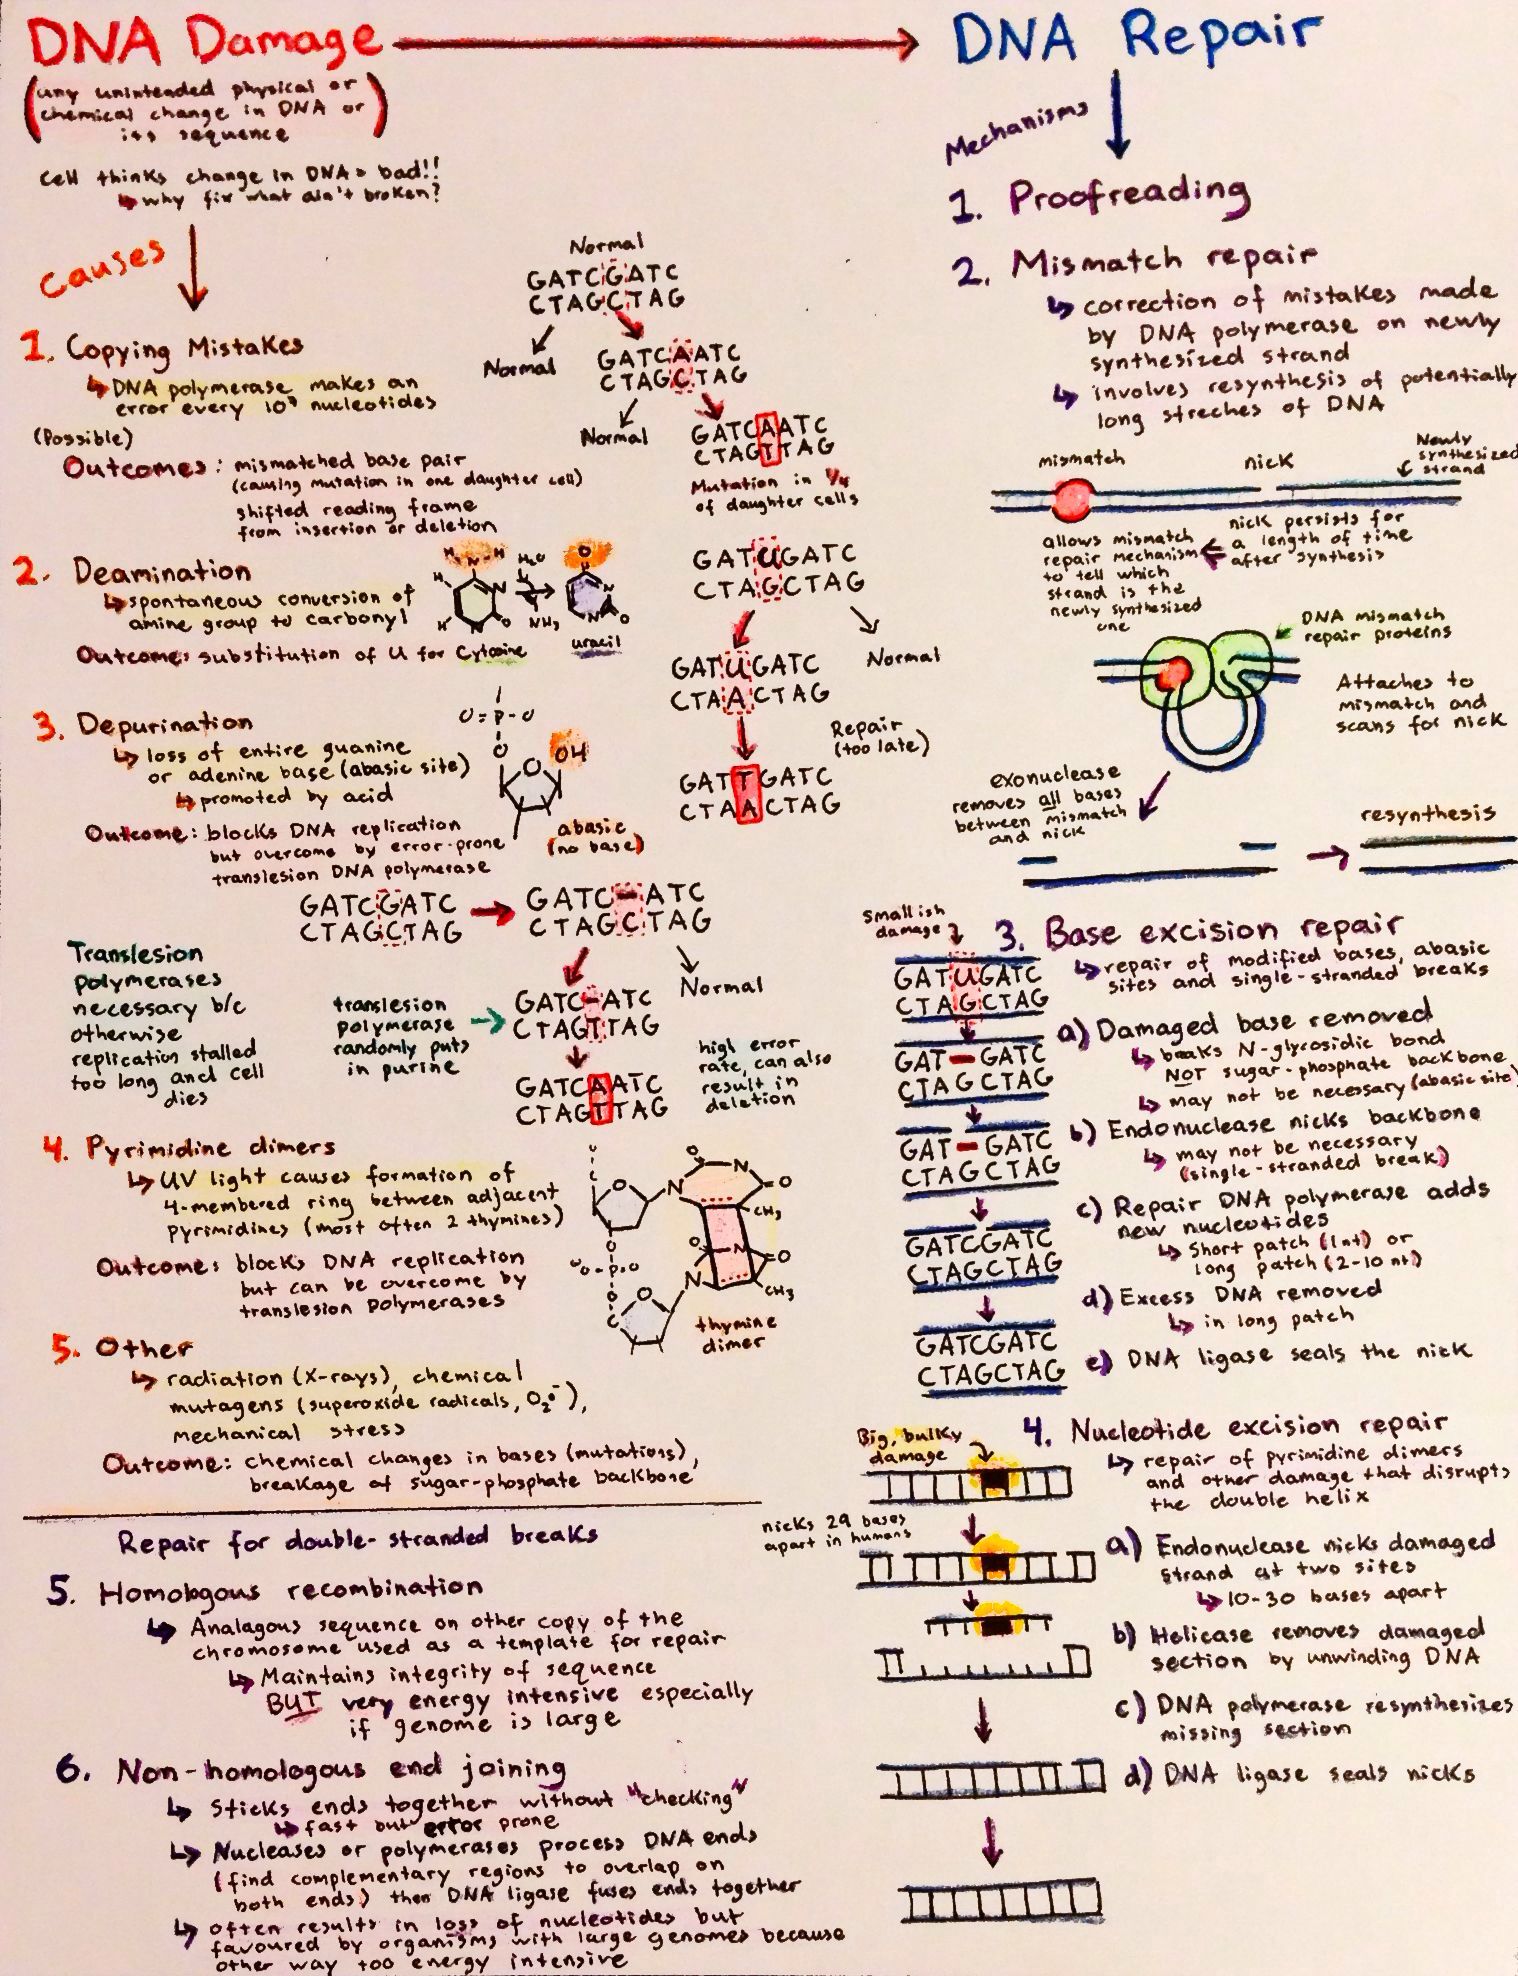 DNA Damage
(any unintended physical or
chemical change in DNA or
its sequence)
Cell thinks change in DNA = bad!!
↳ why fix what ain't broken?
Causes
1. Copying Mistakes
↳ DNA polymerase makes an
error every 10⁹ nucleotides
(Possible)
Outcomes: mismatched base pair
(causing mutation in one daughter cell)
shifted reading frame
from insertion or deletion
Normal
GATCGATC
CTAGCTAG
Normal
GATCAATC
CTAGCTAG
Normal
GATCAATC
CTAGTTAG
Mutation in 1/4
of daughter cells
2. Deamination
↳ spontaneous conversion of
amine group to carbonyl
Outcome: substitution of U for Cytosine
H N H
H₂O
NH₃
O
H
N
N
O
H
N
N
O
uracil
GATUGATC
CTAGCTAG
GATUGATC
CTAACTAG
Normal
Repair
(too late)
GATTGATC
CTAACTAG
3. Depurination
↳ loss of entire guanine
or adenine base (abasic site)
↳ promoted by acid
Outcome: blocks DNA replication
but overcome by error-prone
translesion DNA polymerase
O=P-O
O
O
OH
abasic
(no base)
GATCGATC
CTAGCTAG
GATC-ATC
CTAGCTAG
Normal
GATC-ATC
CTAGTTAG
GATCAATC
CTAGTTAG
Translesion
polymerases
necessary b/c
otherwise
replication stalled
too long and cell
dies
translesion
polymerase
randomly puts
in purine
high error
rate, can also
result in
deletion
4. Pyrimidine dimers
↳ UV light causes formation of
4-membered ring between adjacent
pyrimidines (most often 2 thymines)
Outcome: blocks DNA replication
but can be overcome by
translesion polymerases
O
N
O
N
O
CH₃
O
N
O
O-P-O
O
C
O
N
CH₃
thymine
dimer
5. Other
↳ radiation (X-rays), chemical
mutagens (superoxide radicals, O₂⁻),
mechanical stress
Outcome: chemical changes in bases (mutations),
breakage of sugar-phosphate backbone
Repair for double-stranded breaks
5. Homologous recombination
↳ Analagous sequence on other copy of the
chromosome used as a template for repair
↳ Maintains integrity of sequence
BUT very energy intensive especially
if genome is large
6. Non-homologous end joining
↳ Sticks ends together without "checking"
↳ fast but error prone
↳ Nucleases or polymerases process DNA ends
(find complementary regions to overlap on
both ends) then DNA ligase fuses ends together
↳ often results in loss of nucleotides but
favoured by organisms with large genomes because
other way too energy intensive
DNA Repair
Mechanisms
1. Proofreading
2. Mismatch repair
↳ correction of mistakes made
by DNA polymerase on newly
synthesized strand
↳ involves resynthesis of potentially
long streches of DNA
mismatch
nick
Newly
synthesized
strand
allows mismatch
repair mechanism
to tell which
strand is the
newly synthesized
one
nick persists for
a length of time
after synthesis
DNA mismatch
repair proteins
Attaches to
mismatch and
scans for nick
exonuclease
removes all bases
between mismatch
and nick
resynthesis
3. Base excision repair
↳ repair of modified bases, abasic
sites and single-stranded breaks
Smallish
damage
GATUGATC
CTAGCTAG
a) Damaged base removed
↳ breaks N-glycosidic bond
NOT sugar-phosphate backbone
↳ may not be necessary (abasic site)
GAT-GATC
CTAGCTAG
b) Endonuclease nicks backbone
↳ may not be necessary
(single-stranded break)
GAT-GATC
CTAGCTAG
c) Repair DNA polymerase adds
new nucleotides
↳ Short patch (1nt) or
long patch (2-10 nt)
GATCGATC
CTAGCTAG
d) Excess DNA removed
↳ in long patch
GATCGATC
CTAGCTAG
e) DNA ligase seals the nick
4. Nucleotide excision repair
↳ repair of pyrimidine dimers
and other damage that disrupts
the double helix
Big, bulky
damage
nicks 29 bases
apart in humans
a) Endonuclease nicks damaged
strand at two sites
↳ 10-30 bases apart
b) Helicase removes damaged
section by unwinding DNA
c) DNA polymerase resynthesizes
missing section
d) DNA ligase seals nicks